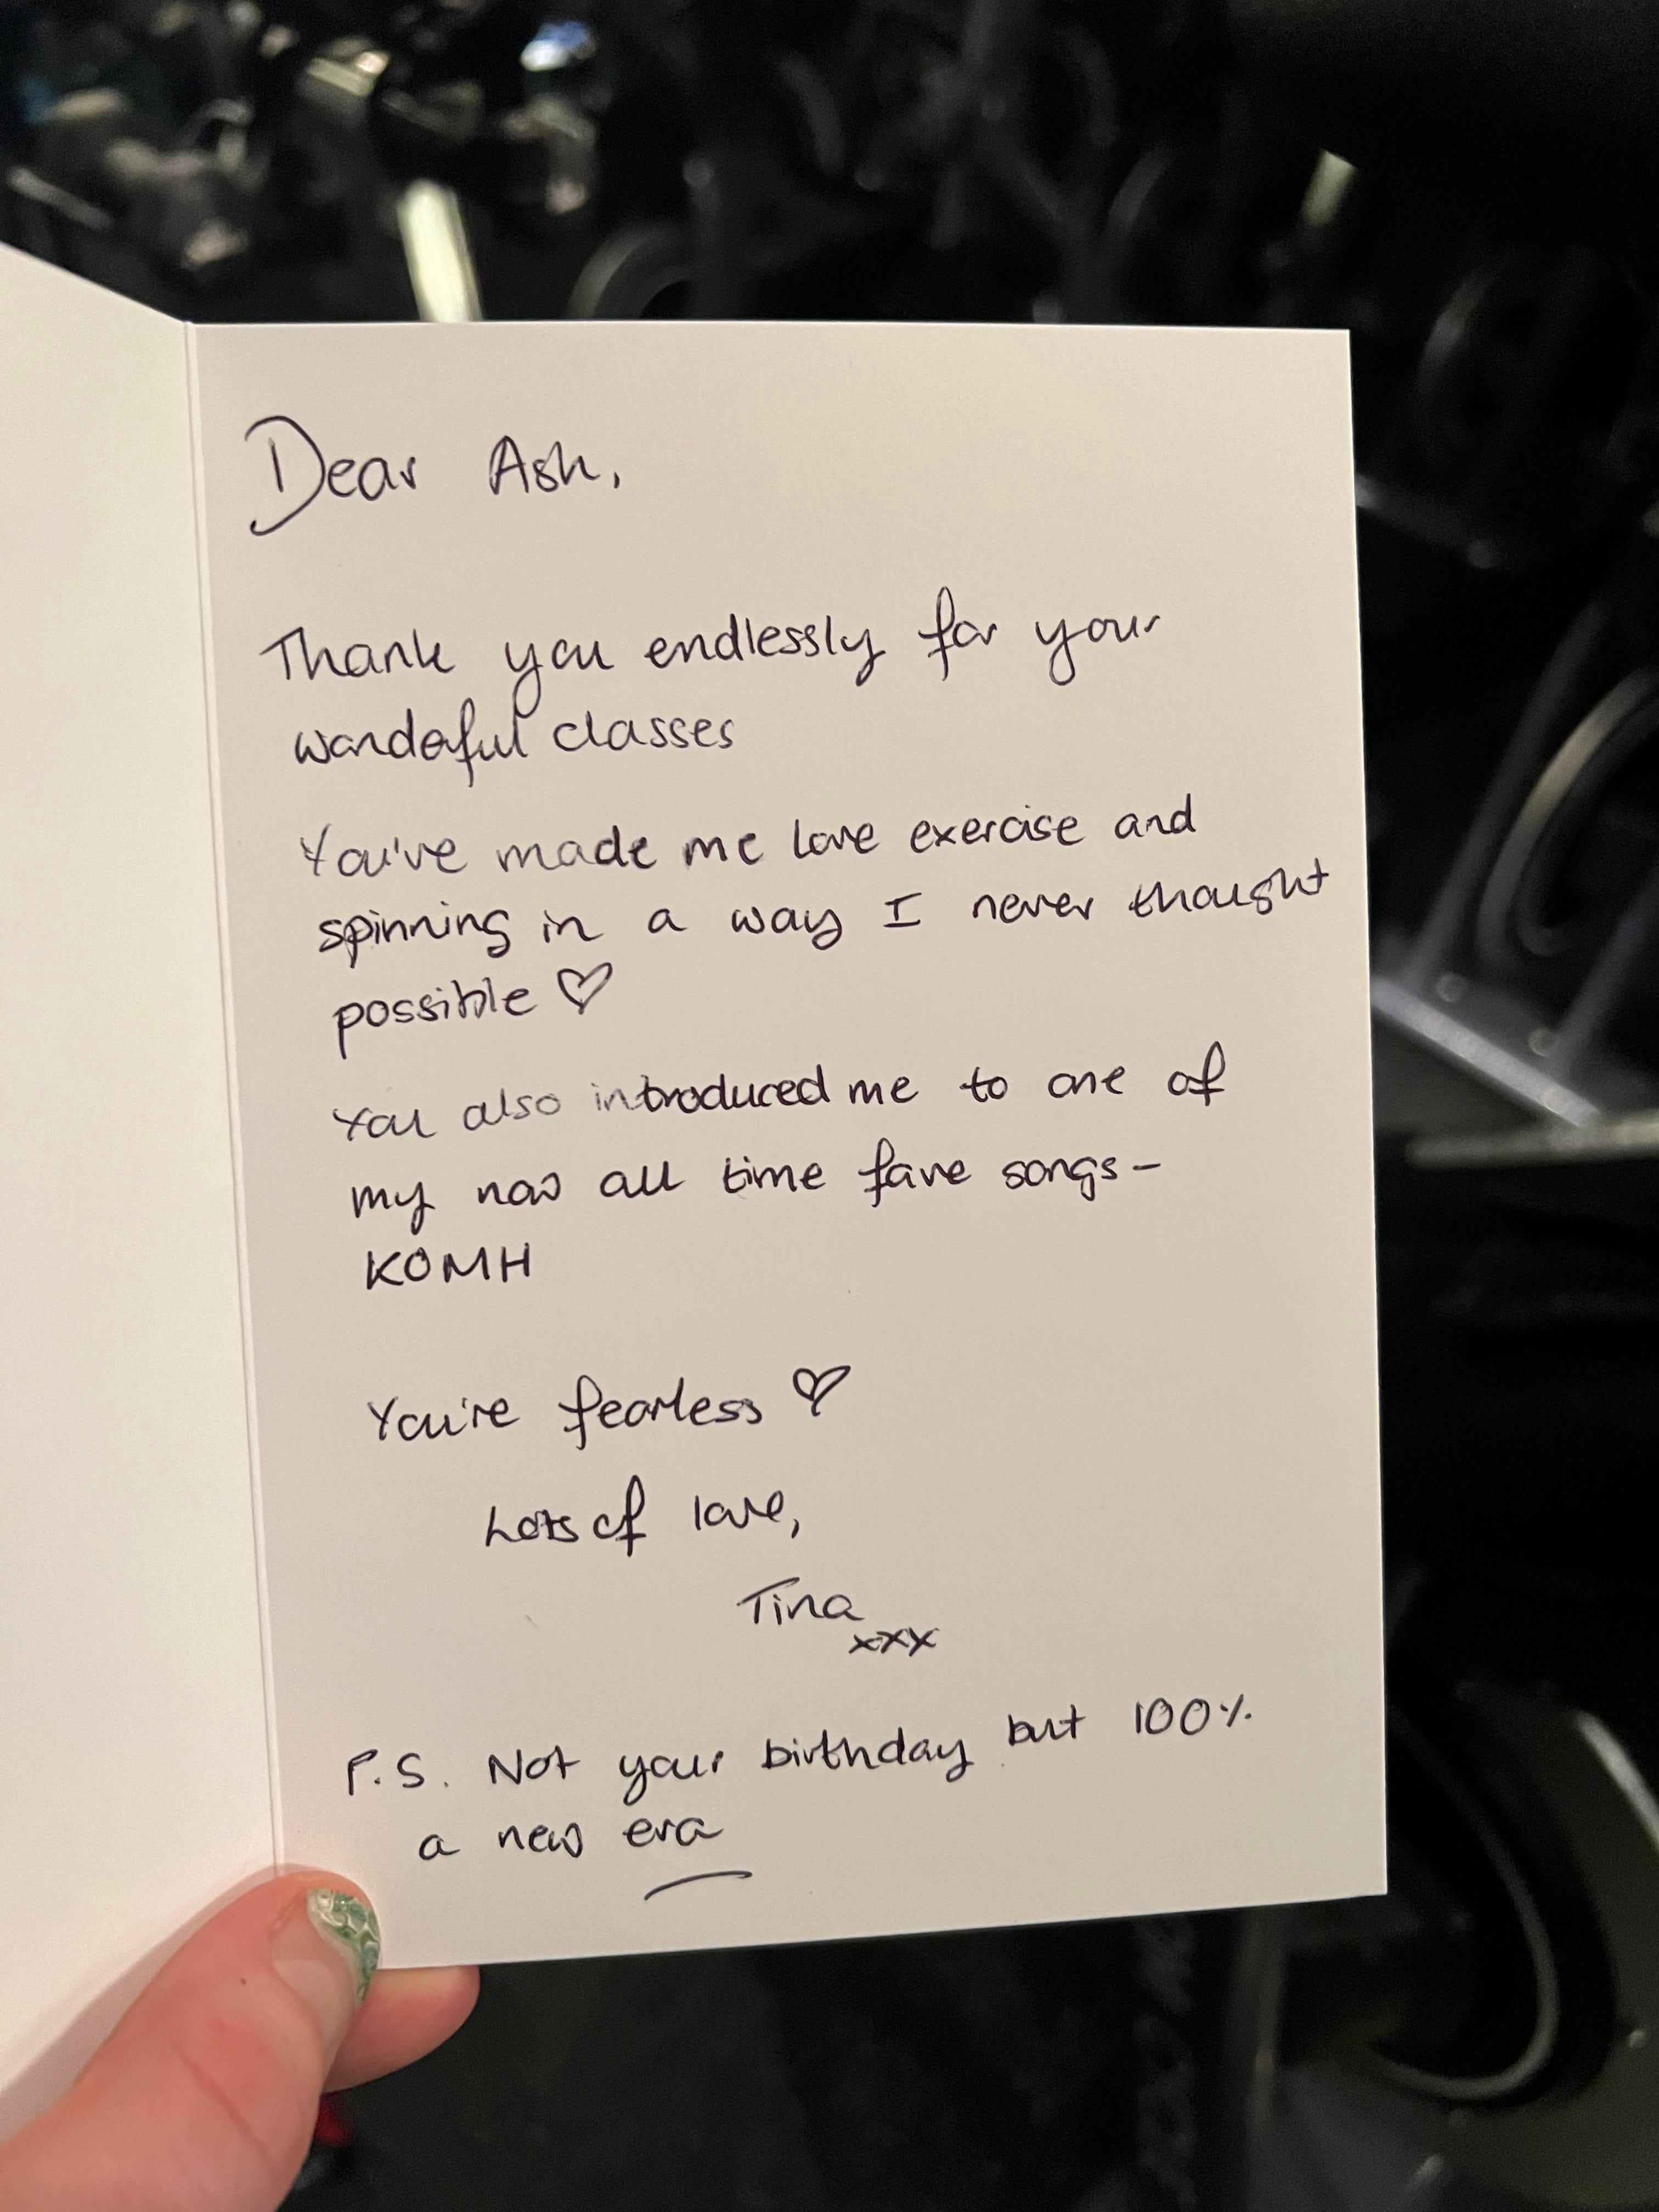 Dear Ash,
Thank you endlessly for your
wonderful classes
You've made me love exercise and
spinning in a way I never thought
possible ♡
You also introduced me to one of
my now all time fave songs -
KOMH
You're fearless ♡
Lots of love,
Tina
xxx
P.S. Not your birthday but 100%
a new era